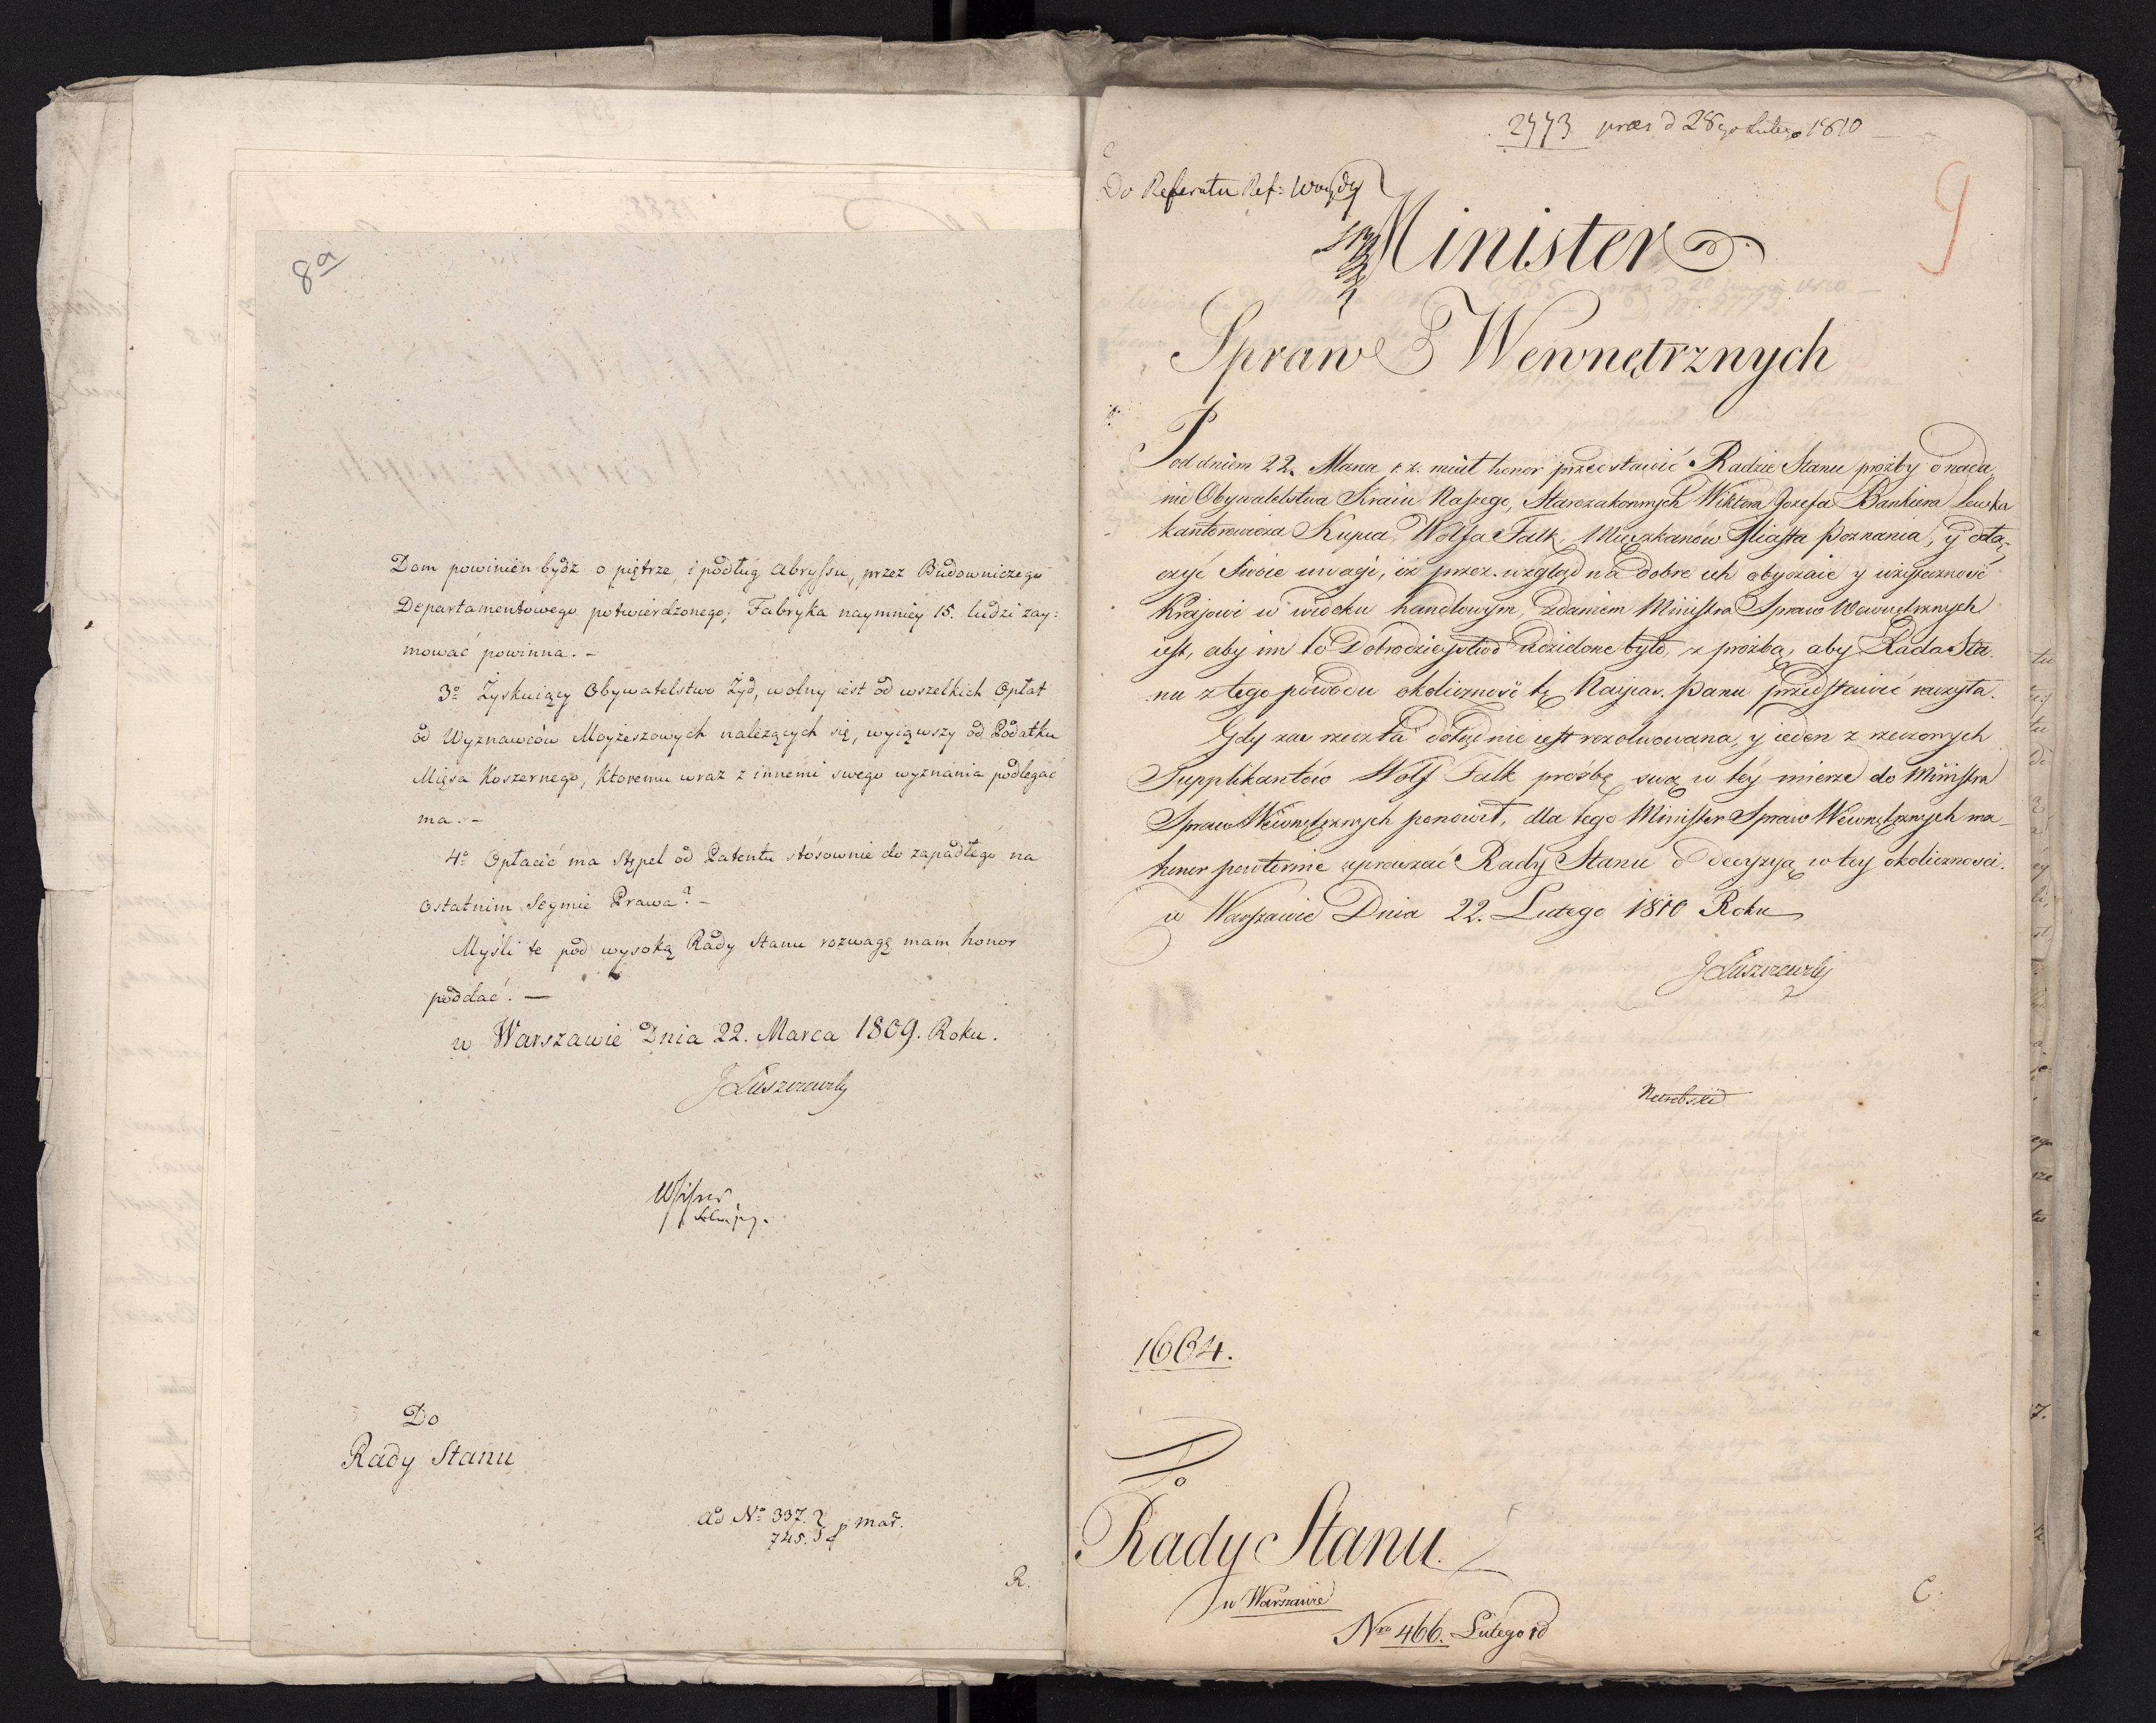 8a
Dom powinien bydź o piętrze, i podług abryssu, przez Budowniczego
Departamentowego potwierdzonego; Fabryka naymniey 15. ludzi zay:
mować powinna. –
3o Zyskuiący Obywatelstwo Żyd, wolny iest od wszelkich Opłat
od Wyznawców Moyżeszowych należących się, wyiąwszy od Podatku
Mięsa Koszernego, ktoremu wraz z innemi swego wyznania podlegać
ma. –
4o Opłacić ma Stępel od Patentu stósownie do zapadłego na
ostatnim Seymie Prawa? –
Myśli te pod wysoką Rady Stanu rozwagę mam honor
poddać. —
w Warszawie Dnia 22. Marca 1809. Roku.
JŁuszczewsky
Do
Rady Stanu
ad No 337.
745. mar.
R.
2773 praes d 28go Lutego 1810 —
9
Do Referatu Ref:
Minister
Spraw Wewnętrznych
Pod dniem 22. Marca r. z. miał honor przedstawić Radzie Stanu proźby o nada,
nie Obywatelstwa Kraiu Naszego, Starozakonnych Wiktora Jozefa Bankiera Lewka
kantorowicza Kupca, Wolfa Falk, Mieszkanów Miasta Poznania, y dołą,
czyć swoie uwagi, iż przez wzgląd na dobre ich obyczaie y użyteczność
Krajowi w widoku handlowym, zdaniem Ministra Spraw Wewnętrznych
iest, aby im to Dobrodzieystwo udzielone było, z proźbą, aby Rada Sta
nu z tego powodu okoliczność tę Nayias. Panu przedstawić raczyła.
Gdy zaś rzecz ta dotąd nie iest rezolwowana, y ieden z rzeczonych
Supplikantów Wolf Falk prośbę swą w téy mierze do Ministra
Spraw Wewnętrznych ponowił, dla tego Minister Spraw Wewnętrznych ma
honor powtórnie upraszać Rady Stanu o decyzyą w tey okoliczności.
w Warszawie Dnia 22. Lutego 1810 Roku
JŁuszczewsky
1664.
Do
Rady Stanu.
w Warszawie
Nro 466. Lutego
C.